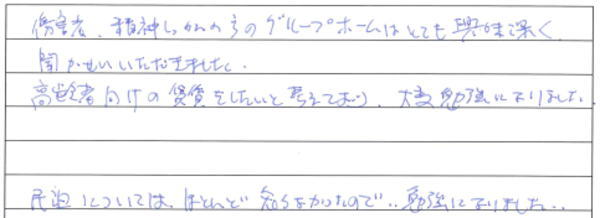 傷害者、精神しっかんの方のグループホームはとても興味深く
聞かせいいただきました。
高齢者向けの賃貸をしたいと考えており、大変勉強になりました。
民泊については、ほとんど知らなかったので‥勉強になりました‥